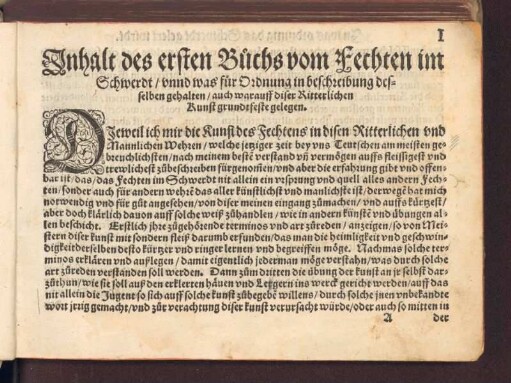 I
Inhalt des ersten Buchs vom Fechten im
Schwerdt / vnnd was für Ordnung in beschreibung des-
selben gehalten / auch warauff diser Ritterlichen
Kunst grundtfeste gelegen.
DJeweil ich mir die Kunst des Fechtens in disen Ritterlichen vnd
Mannlichen Wehren / welche jetziger zeit bey vns Teutschen am meisten ge-
breuchlichsten / nach meinem besté verstand vñ vermögen auffs fleissigest vnd
trewlichest zübeschreiben fürgenoñien / vnd aber die erfahrung gibt vnd offen-
bar ist / das / das Fechten im Schwerdt nit allein ein vrsprung vnd quell alles andern Fech-
tens / sonder auch für andern wehré das aller künstlichst vnd manlichste ist / derwegé hat mich
notwendig vnd für güt angesehen / von diser meinen eingang zümachen / vnd auffs kürtzest /
aber doch klärlich dauon auff solche weiß zühandlen / wie in andern künsté vnd übungen al-
len beschicht. Erstlich jhre zügehörende terminos vnd art züreden / anzeigen / so von Mei-
stern diser kunst mit sondern fleiß darumb erfunden / das man die heimligkeit vnd geschwin-
digkeit derselben desto kürtzer vnd ringer lernen vnd begreiffen möge. Nachmas solche ter-
minos erklären vnd außlegen / damit eigentlich jederman möge verstahn / was durch solche
art züreden verstanden soll werden. Dann züm dritten die übung der kunst an jr selbst dar-
züthun / wie sie soll auß den erklerten häuwen vnd Legern ins werck gericht werden / auff das
nit allein die Jugent so sich auff solche kunst zübegebé willens / durch solche jnen vnbekandte
wort jrrig gemacht / vnd zür verachtung diser kunst verursacht würde / oder auch so mitten in
A der